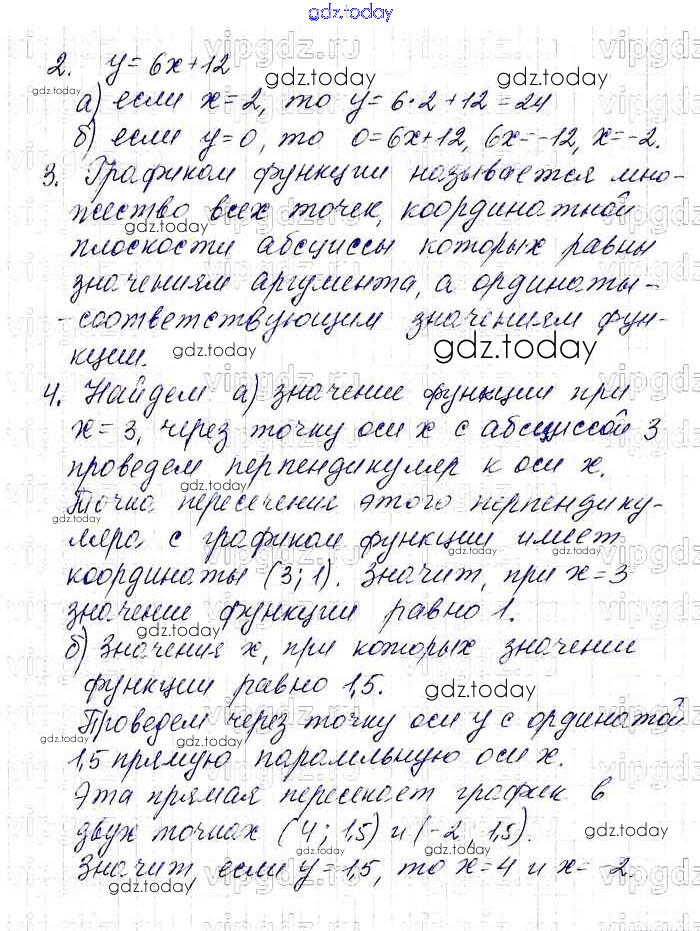 gdz.today
2. y = 6x + 12
а) если x = 2, то y = 6 · 2 + 12 = 24
б) если y = 0, то 0 = 6x + 12, 6x = -12, x = -2.
3. Графиком функции называется мно-
жество всех точек, координатной
плоскости абсциссы которых равны
значениям аргумента, а ординаты -
- соответствующим значениям фун-
кции.
4. Найдем а) значение функции при
x = 3, через точку оси x с абсциссой 3
проведем перпендикуляр к оси x.
Точка пересечение этого перпендику-
ляра с графиком функции имеет
координаты (3; 1). Значит, при x = 3
значение функции равно 1.
б) Значения x, при которых значение
функции равно 1,5.
Проведем через точку оси y с ординатой
1,5 прямую паралельную оси x.
Эта прямая пересекает график в
двух точках (4; 1,5) и (-2; 1,5).
Значит, если y = 1,5, то x = 4 и x = -2.